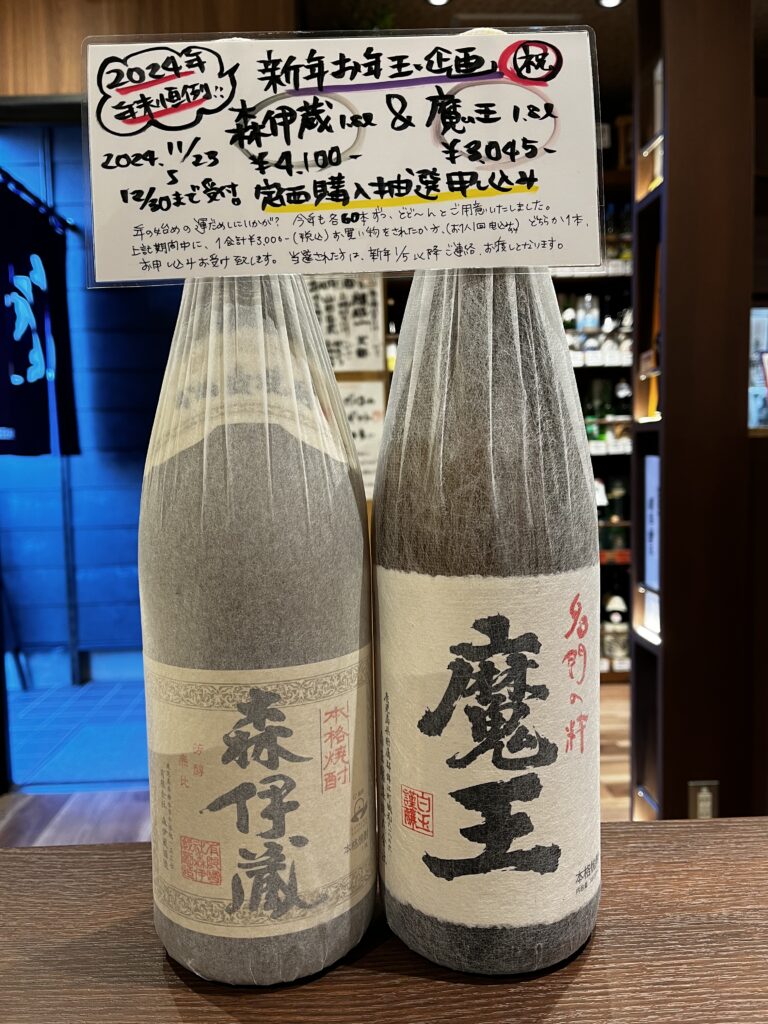 2024年
年末恒例!!
新年お年玉企画 祝
森伊蔵1.8L & 魔王1.8L
¥4,100- ¥3,045-
2024.11/23
12/30まで受付。
定価購入抽選申し込み
年の始めの運だめしにいかが? 今年も各60本ずつ、どど〜んとご用意いたしました。
上記期間中に、1会計¥3,000-(税込)お買い物をされたかた、(お1人1回申込み)どちらか1本、
お申し込みお受け致します。 当選された方は、新年1/5以降ご連絡、お渡しとなります。
本格焼酎
森伊蔵
芳醇
無比
名門の粋
魔王
白玉
謹醸
本格焼酎